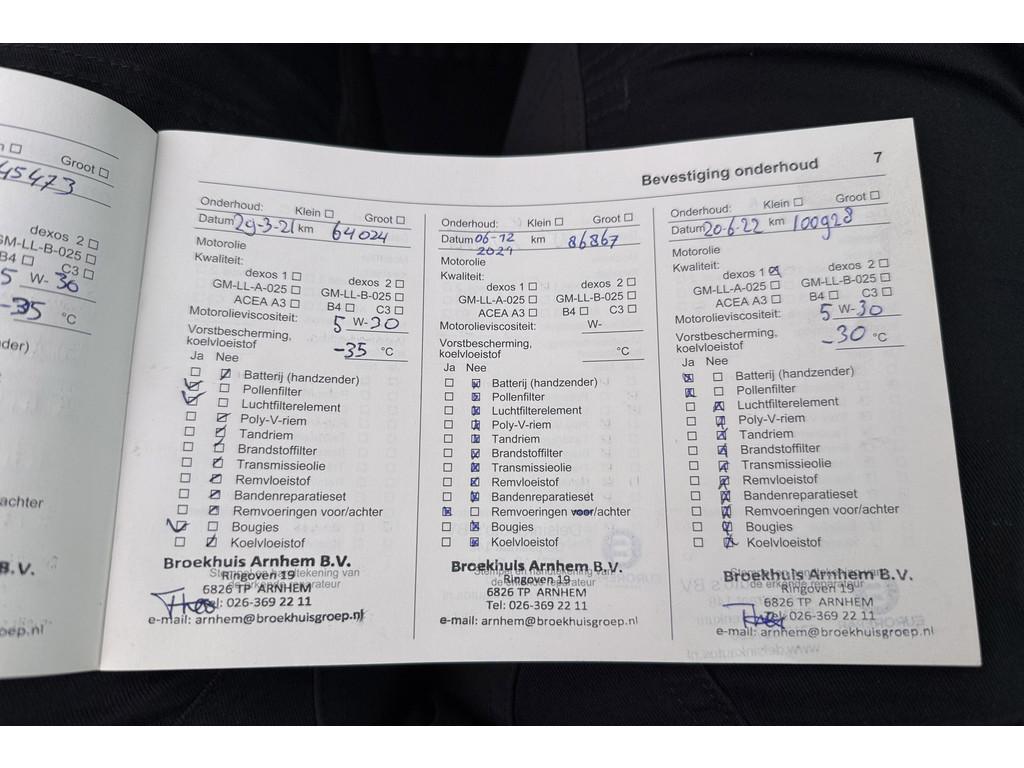 Groot □
45473
dexos 2 □
GM-LL-B-025 □
B4 □ C3 □
5 W-30
-35 °C
achter
B.V.
oep.nl
Bevestiging onderhoud 7
Onderhoud: Klein □ Groot □
Datum 29-3-21 km 64024
Motorolie
Kwaliteit:
dexos 1 □ dexos 2 □
GM-LL-A-025 □ GM-LL-B-025 □
ACEA A3 □ B4 □ C3 □
Motorolieviscositeit: 5 W-30
Vorstbescherming,
koelvloeistof -35 °C
Ja Nee
Batterij (handzender)
Pollenfilter
Luchtfilterelement
Poly-V-riem
Tandriem
Brandstoffilter
Transmissieolie
Remvloeistof
Bandenreparatieset
Remvoeringen voor/achter
Bougies
Koelvloeistof
Broekhuis Arnhem B.V.
Stempel en handtekening van
Ringoven 19
de erkende reparateur
6826 TP ARNHEM
Tel: 026-369 22 11
e-mail: arnhem@broekhuisgroep.nl
Onderhoud: Klein □ Groot □
Datum 06-12 km 86867
2021
Motorolie
Kwaliteit:
dexos 1 □ dexos 2 □
GM-LL-A-025 □ GM-LL-B-025 □
ACEA A3 □ B4 □ C3 □
Motorolieviscositeit: W-
Vorstbescherming,
koelvloeistof °C
Ja Nee
Batterij (handzender)
Pollenfilter
Luchtfilterelement
Poly-V-riem
Tandriem
Brandstoffilter
Transmissieolie
Remvloeistof
Bandenreparatieset
Remvoeringen voor/achter
Bougies
Koelvloeistof
Broekhuis Arnhem B.V.
Stempel en handtekening van
Ringoven 19
de erkende reparateur
6826 TP ARNHEM
Tel: 026-369 22 11
e-mail: arnhem@broekhuisgroep.nl
Onderhoud: Klein □ Groot □
Datum 20-6-22 km 100928
Motorolie
Kwaliteit:
dexos 1 ☒ dexos 2 □
GM-LL-A-025 □ GM-LL-B-025 □
ACEA A3 □ B4 □ C3 □
Motorolieviscositeit: 5 W-30
Vorstbescherming,
koelvloeistof -30 °C
Ja Nee
Batterij (handzender)
Pollenfilter
Luchtfilterelement
Poly-V-riem
Tandriem
Brandstoffilter
Transmissieolie
Remvloeistof
Bandenreparatieset
Remvoeringen voor/achter
Bougies
Koelvloeistof
Broekhuis Arnhem B.V.
Stempel en handtekening van
Ringoven 19
de erkende reparateur
6826 TP ARNHEM
Tel: 026-369 22 11
e-mail: arnhem@broekhuisgroep.nl